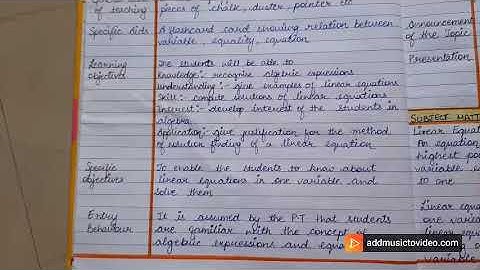 of teaching
pieces of chalk, duster, pointer etc
Specific Aids
A flashcard card showing relation between
variable, equality, equation
Learning
objectives
The students will be able to
Knowledge:- recognise algebric expressions
Understanding:- give examples of linear equations
Skill:- compute solutions of linear equations
Interest:- develop interest of the students in
algebra
Application:- give justification for the method
of solution finding of a linear equation
Specific
objectives
To enable the students to know about
linear equations in one variable and
solve them
Entry
behaviour
It is assumed by the P.T that students
are familiar with the concept of
algebric expressions and equa
Announcement
of the Topic
Presentation
SUBJECT MATT
Linear Equat
An equation
highest po
variable
to one
Linear e
one varia
linear equ
ing o
one variab
of
addmusictovideo.com